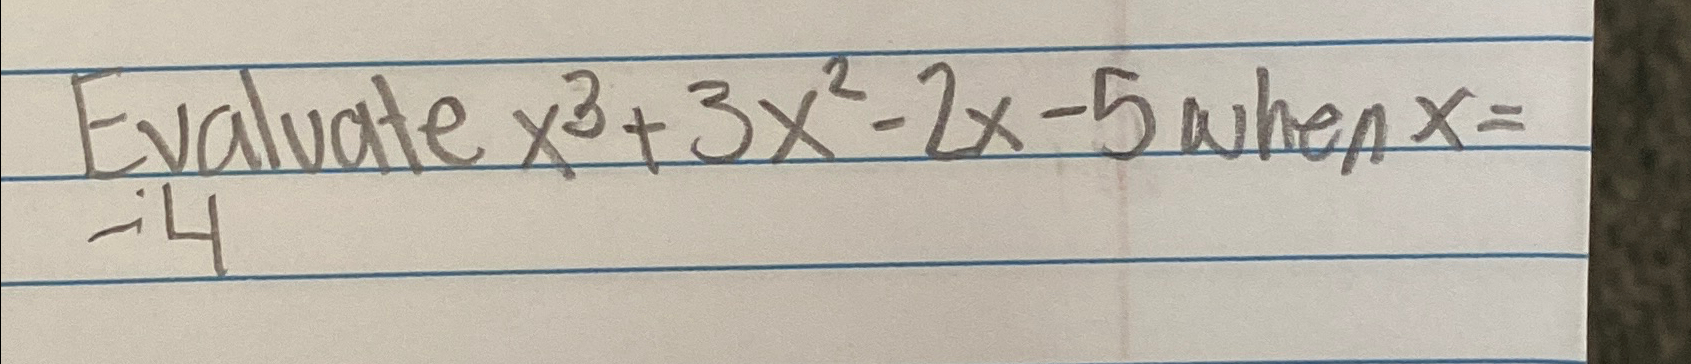 Evaluate x³+3x²-2x-5 when x=
-4